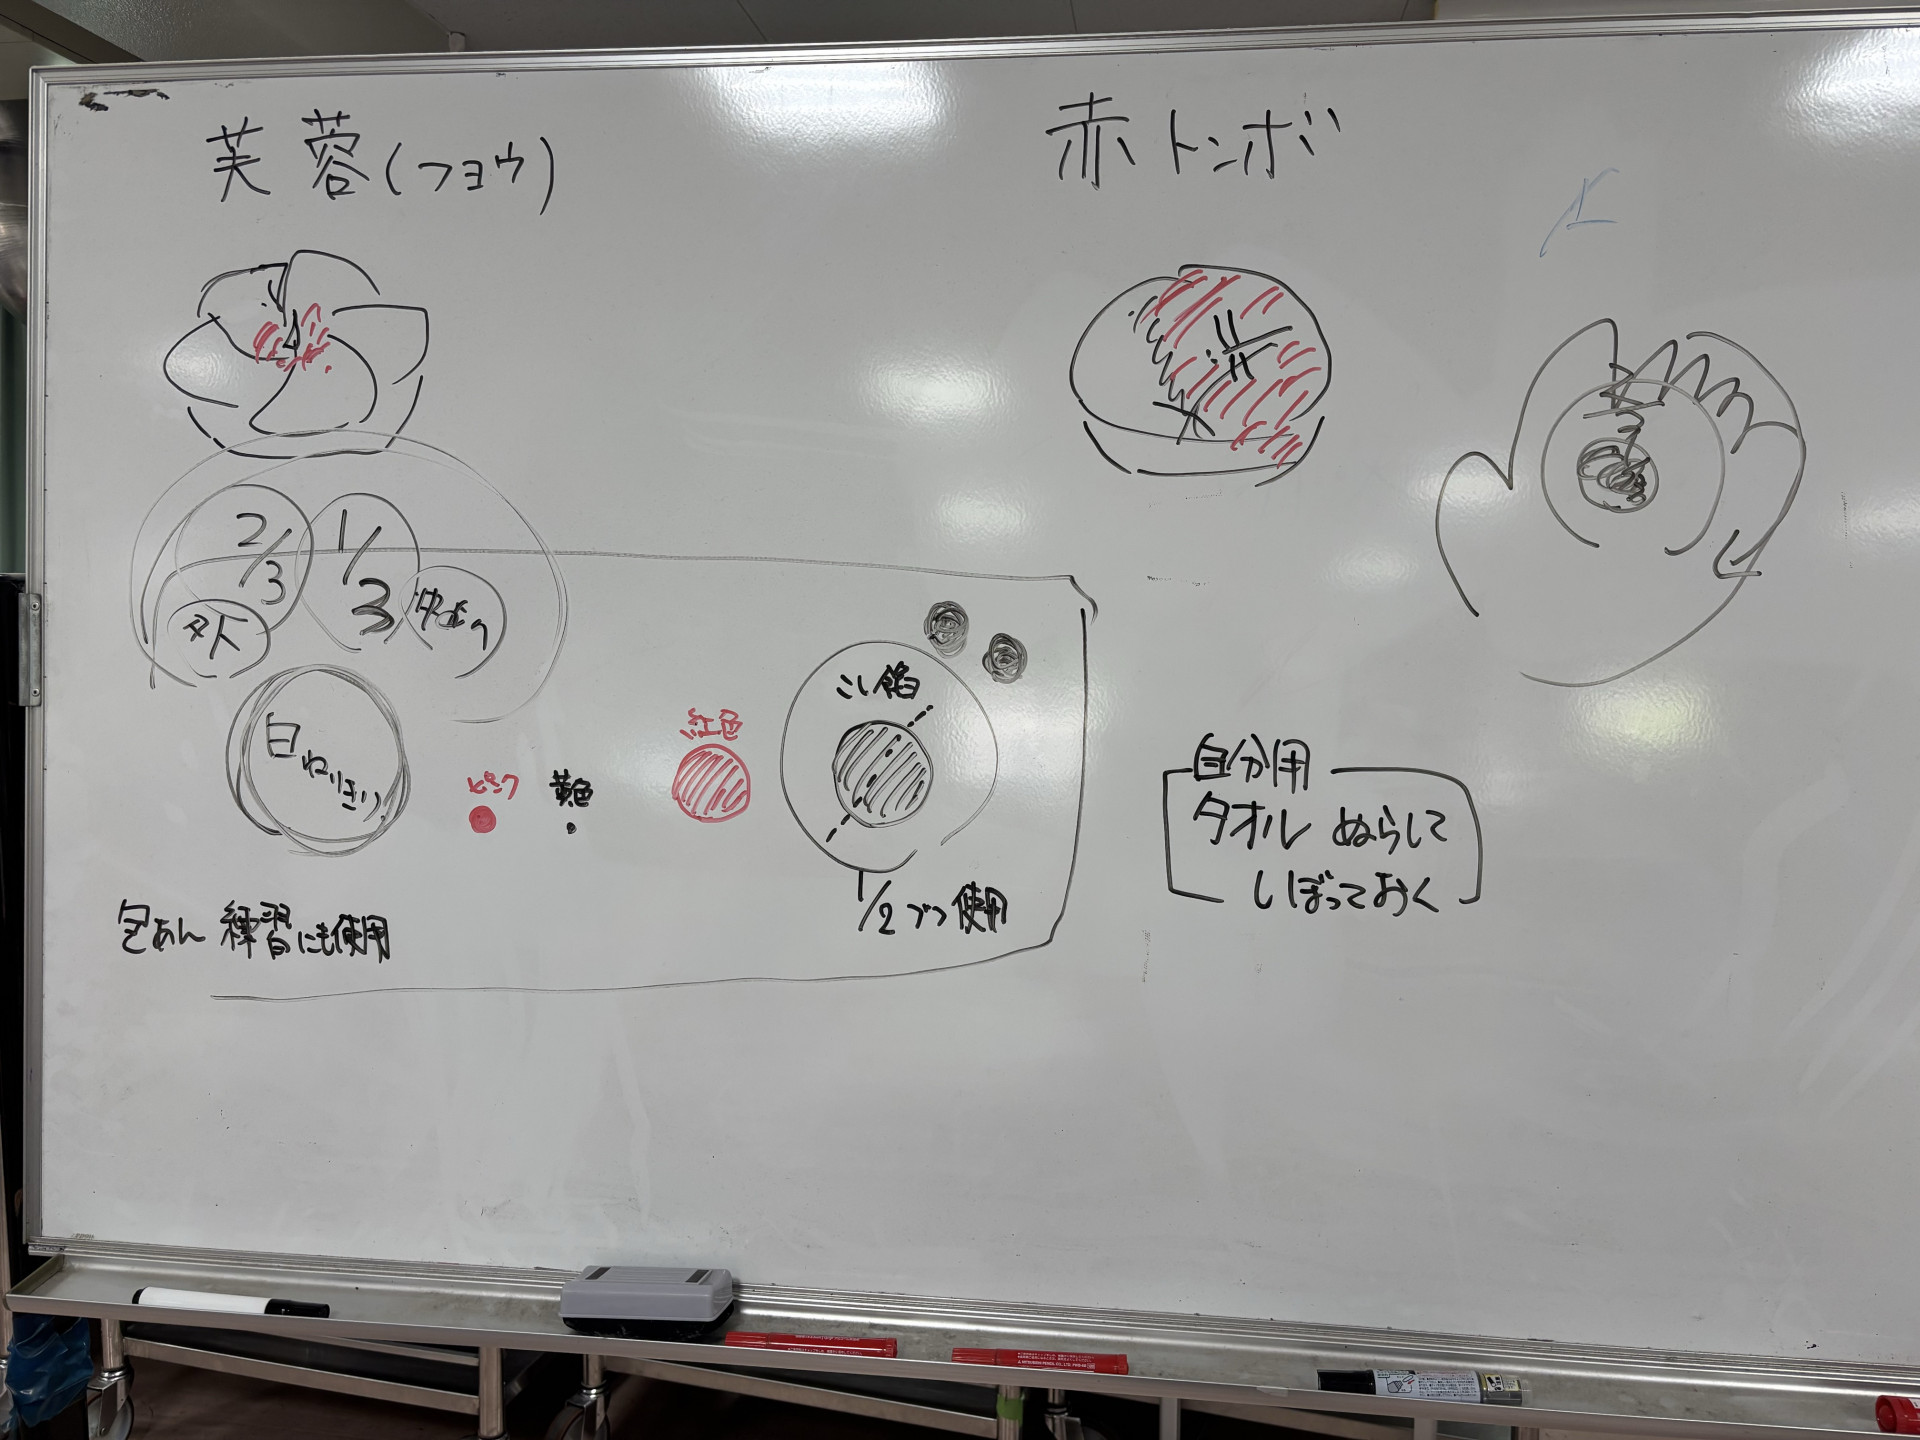 芙蓉(フヨウ)
赤トンボ
2/3
1/3
外
白ねりきり
ピンク
黄色
紅色
こし餡
1/2ずつ使用
包あん 練習にも使用
自分用
タオル ぬらして
しぼっておく